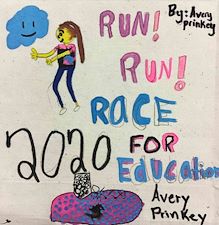 RUN!
By: Avery
prinkey
RUN!
RACE
2020 FOR
Education
Avery
Prinkey